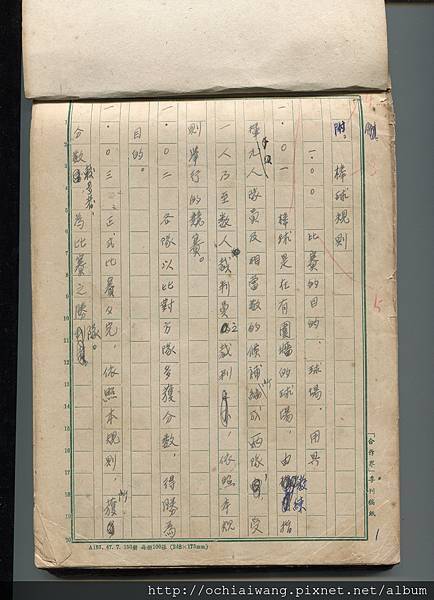 附.
棒球規則
一.〇〇 比賽的目的,球場,用具
一.〇一 棒球是在有圍牆的球場,由教練指
揮九人隊員及相當數的候補編成兩隊,受
一人乃至數人裁判員之裁判,依照本規
則舉行的競賽。
一.〇二 各隊以比對方隊多獲分數,得勝為
目的。
一.〇三 正式比賽之完,依照本規則,獲
分數較多者,為比賽之勝隊。
「合作界」季刊稿紙
1
15
A185. 47. 7. 150冊 每冊100張 (248×175mm)
http://ochiaiwang.pixnet.net/album